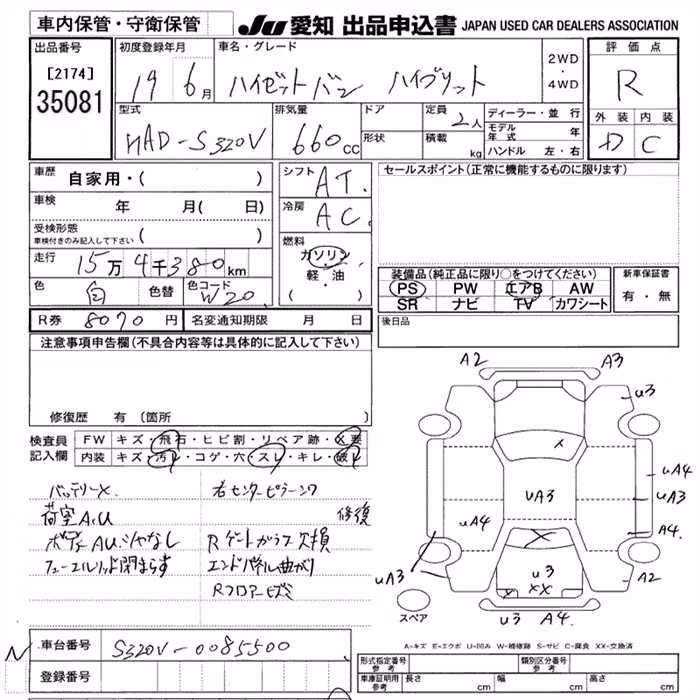 車内保管・守衛保管
JU 愛知 出品申込書 JAPAN USED CAR DEALERS ASSOCIATION
出品番号
[2174]
35081
初度登録年月
19 6月
車名・グレード
ハイゼットバン ハイブリット
2WD
・
4WD
評価点
R
外装 内装
D C
型式
HAD-S320V
排気量
660cc
ドア
形状
定員
2人
積載
kg
ディーラー・並行
モデル年式 年
ハンドル 左・右
車歴 自家用・( )
車検 年 月( 日)
受検形態
車検付きのみ記入して下さい ( )
走行 15万4千380km
色 白 色替 色コード W20
シフト AT.
冷房 AC.
燃料
ガソリン
軽・油
( )
セールスポイント(正常に機能するものに限ります)
装備品(純正品に限り○をつけてください)
PS PW エアB AW
SR ナビ TV カワシート
新車保証書
有・無
R券 8070円 名変通知期限 月 日
後日品
注意事項申告欄(不具合内容等は具体的に記入して下さい)
修復歴 有(箇所
検査員
記入欄
FW キズ・飛石・ヒビ割・リペア跡・X要
内装 キズ・汚れ・コゲ・穴・スレ・キレ・破れ
バッテリーX
荷室A.U
ボディAU
フューエルリッド閉まらず
右センターピラーシワ
修復
Rゲートガラス欠損
エンドパネル曲がり
Rフロアーヒズミ
A2 A3
U3
UA4
UA3
A4
A2
UA3
UA4
UA3
X
X
U3
XX
U3 A4
スペア
A-キズ E-エクボ U-凹み W-補修跡 S-サビ C-腐食 XX-交換済
N
車台番号 S320V-0085500
登録番号
形式指定番号
参考
類別区分番号
参考
車庫証明用
参考
長さ cm 幅 cm 高さ cm